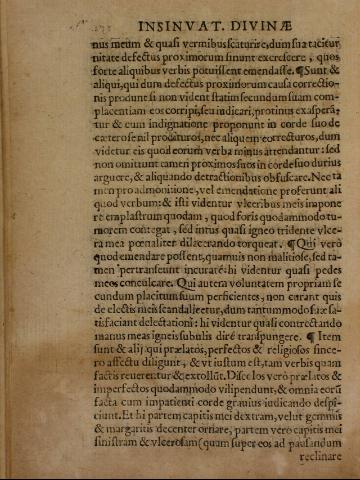 INSINVAT. DIVINÆ
nus meum & quasi vermibus scaturire, dum sua tacitur
nitate defectus proximorum sinunt excrescere, quos
forte aliquibus verbis potuissent emendasse. ¶ Sunt &
aliqui, qui dum defectus proximorum causa correctio-
nis produnt si non vident statim secundum suam com-
placentiam eos corripi, seu iudicari, protinus exasperā-
tur & cum indignatione proponunt in corde suo de
cætero se nil prodituros, nec aliquem correcturos, dum
videtur eis quod eorum verba minus attendantur: sed
non omittunt tamen proximos suos in corde suo durius
arguere, & aliquando detractionibus obfuscare. Nec ta
men pro admonitione, vel emendatione proferunt ali
quod verbum: & isti videntur vlceribus meis impone
re emplastrum quodam, quod foris quodammodo tu-
morem contegat, sed intus quasi igneo tridente vlce-
ra mea pœnaliter dilacerando torqueat. ¶ Qui verò
quod emendare possent, quamuis non malitiose, sed ta-
men pertranseunt incuratè: hi videntur quasi pedes
meos conculcare. Qui autem voluntatem propriam se
cundum placitum suum perficientes, non curant quis
de electis meis scandalizetur, dum tantummodo suæ sa-
tisfaciant delectationi: hi videntur quasi contrectando
manus meas igneis subulis dirè transpungere. ¶ Item
sunt & alij qui prælatos, perfectos & religiosos since-
ro affectu diligunt, & vt iustum est, tam verbis quam
factis reuerentur & extollūt. Discolos verò prælatos &
imperfectos quodammodo vilipendunt, & omnia eorū
facta cum impatienti corde grauius iudicando despi-
ciunt. Et hi partem capitis mei dextram, velut gemmis
& margaritis decenter ornare, partem verò capitis mei
sinistram & vlcerosam (quam super eos ad pausandum
reclinare